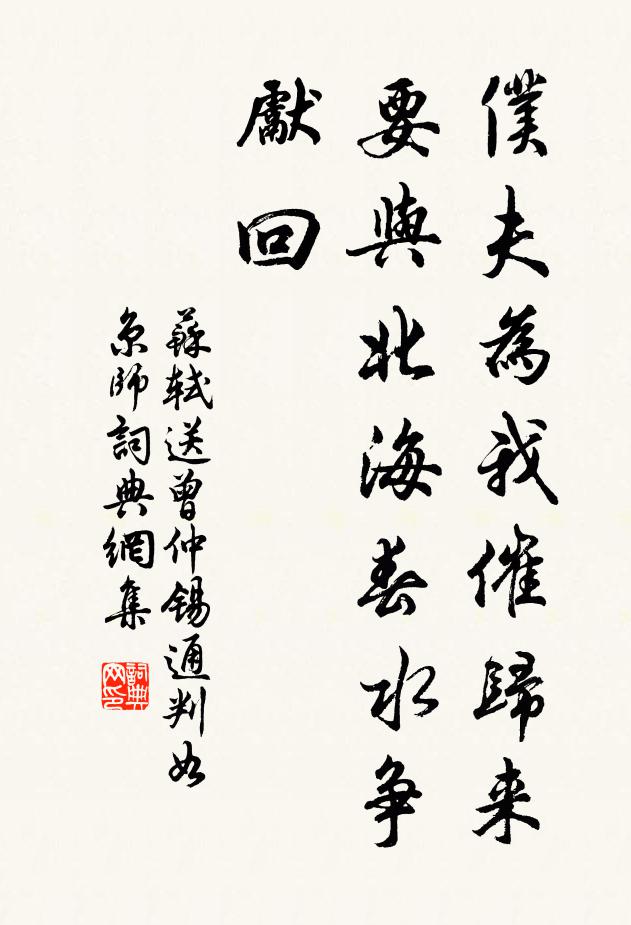 僕夫為我催歸来
要與北海春水争
獻回
蘇軾送曾仲錫通判如
京師詞典網集
詞典
网印